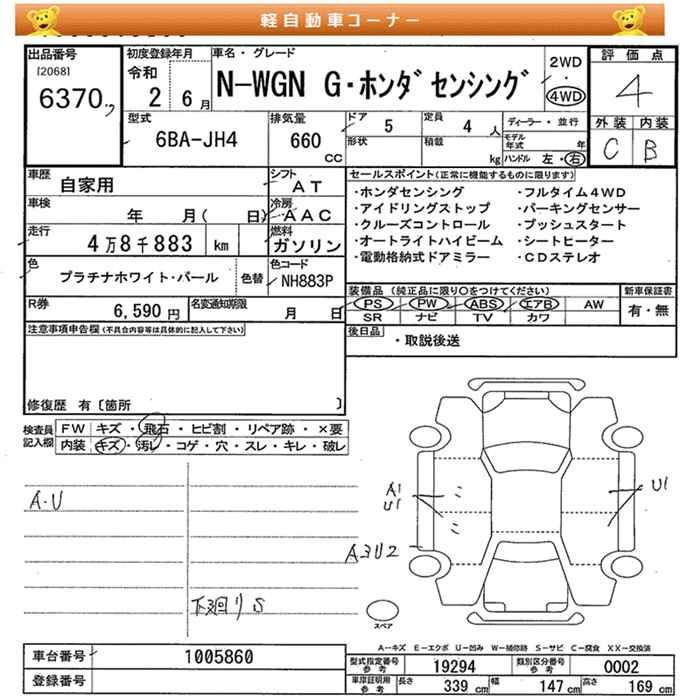 軽自動車コーナー
出品番号
[2068]
6370
初度登録年月
令和
2 6月
車名・グレード
N-WGN G・ホンダセンシング
2WD
・
4WD
評価点
4
外装 内装
C B
型式
6BA-JH4
排気量
660
CC
ドア 5
形状
定員 4 人
積載 kg
ディーラー・並行
モデル年式 年
ハンドル 左・右
車歴 自家用
シフト AT
車検 年 月( 日)
冷房 AAC
走行 4万8千883 km
燃料 ガソリン
色 プラチナホワイト・パール 色替
色コード NH883P
R券 6,590円
名変通知期限 月 日
セールスポイント(正常に機能するものに限ります)
・ホンダセンシング ・フルタイム4WD
・アイドリングストップ ・パーキングセンサー
・クルーズコントロール ・プッシュスタート
・オートライトハイビーム ・シートヒーター
・電動格納式ドアミラー ・CDステレオ
装備品 (純正品に限り○をつけてください)
PS PW ABS エアB AW
SR ナビ TV カワ
新車保証書
有・無
後日品
・取説後送
注意事項申告欄(不具合内容等は具体的に記入して下さい)
修復歴 有〔箇所 〕
検査員記入欄
FW キズ・飛石・ヒビ割・リペア跡・×要
内装 キズ・汚レ・コゲ・穴・スレ・キレ・破レ
A・U
下廻りS
A1
U1
U1
A3U2
スペア
A-キズ E-エクボ U-凹み W-補修跡 S-サビ C-腐食 XX-交換済
車台番号 1005860
登録番号
型式指定番号参考 19294
類別区分番号参考 0002
車庫証明用参考 長さ 339cm 幅 147cm 高さ 169cm